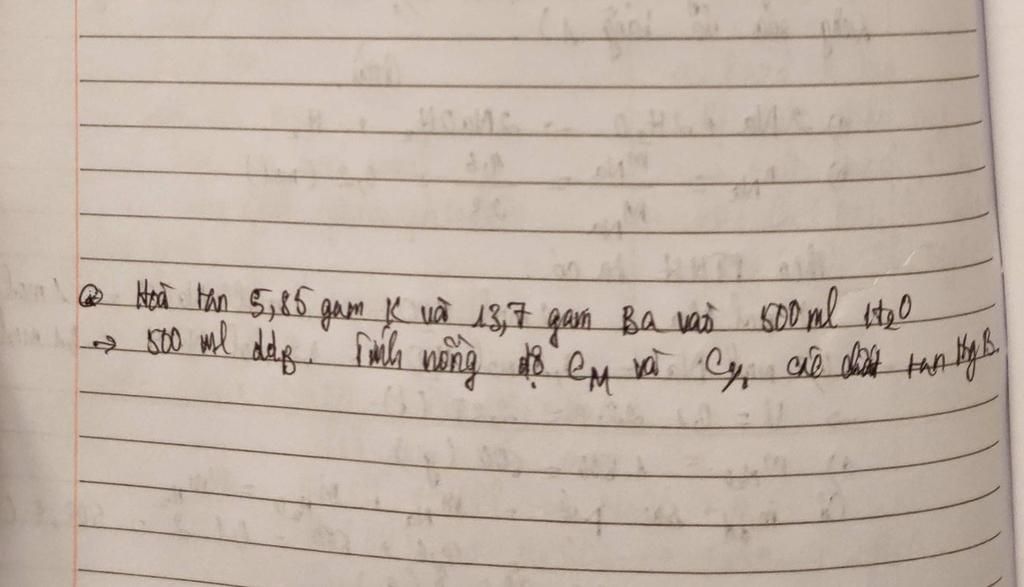 ② Hoà tan 5,85 gam K và 13,7 gam Ba vào 500 ml H₂O
→ 500 ml ddB. Tính nồng độ CM và C% các chất tan trg B.